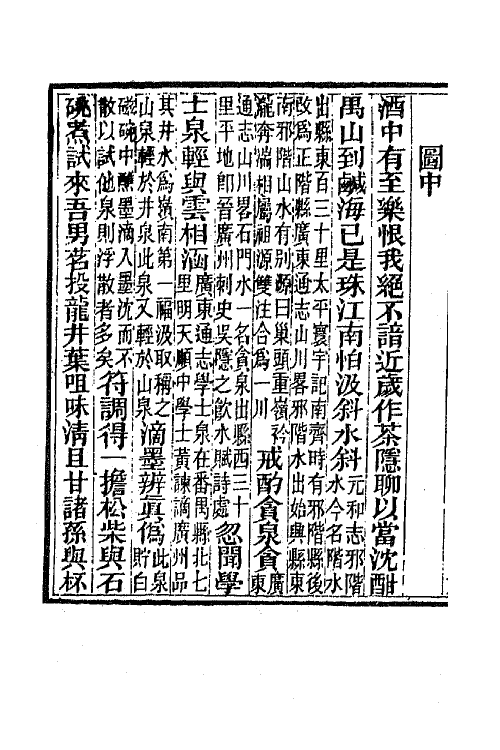 圖中
酒中有至樂恨我絕不諳近歲作茶隱聊以當沈酣
禺山到鹹海已是珠江南怕汲斜水斜
元和志邪階
水今名階水
出縣東百三十里太平寰宇記南齊時有邪階縣後
改爲正階縣廣東通志山川畧邪階水出始興縣東
南邪階山水有別源曰巢頭重嶺衿
瀧奔湍相屬祖源雙注合爲一川
戒酌貪泉貪
廣
東
通志山川畧石門水一名貪泉出縣西三十
里平地郎晉廣州刺史吳隱之飲水賦詩處
忽聞學
士泉輕與雲相涵
廣東通志學士泉在番禺縣北七
里明天順中學士黃諫謫廣州品
其井水爲嶺南第一福汲取稱之
山泉輕於井泉此泉又輕於山泉
滴墨辨眞僞
此泉
貯白
磁碗中蘸墨滴入墨沈而不
散以試他泉則浮散者多矣
符調得一擔松柴與石
䂪煮試來吾男茗投龍井葉咀味淸且甘諸孫與杯